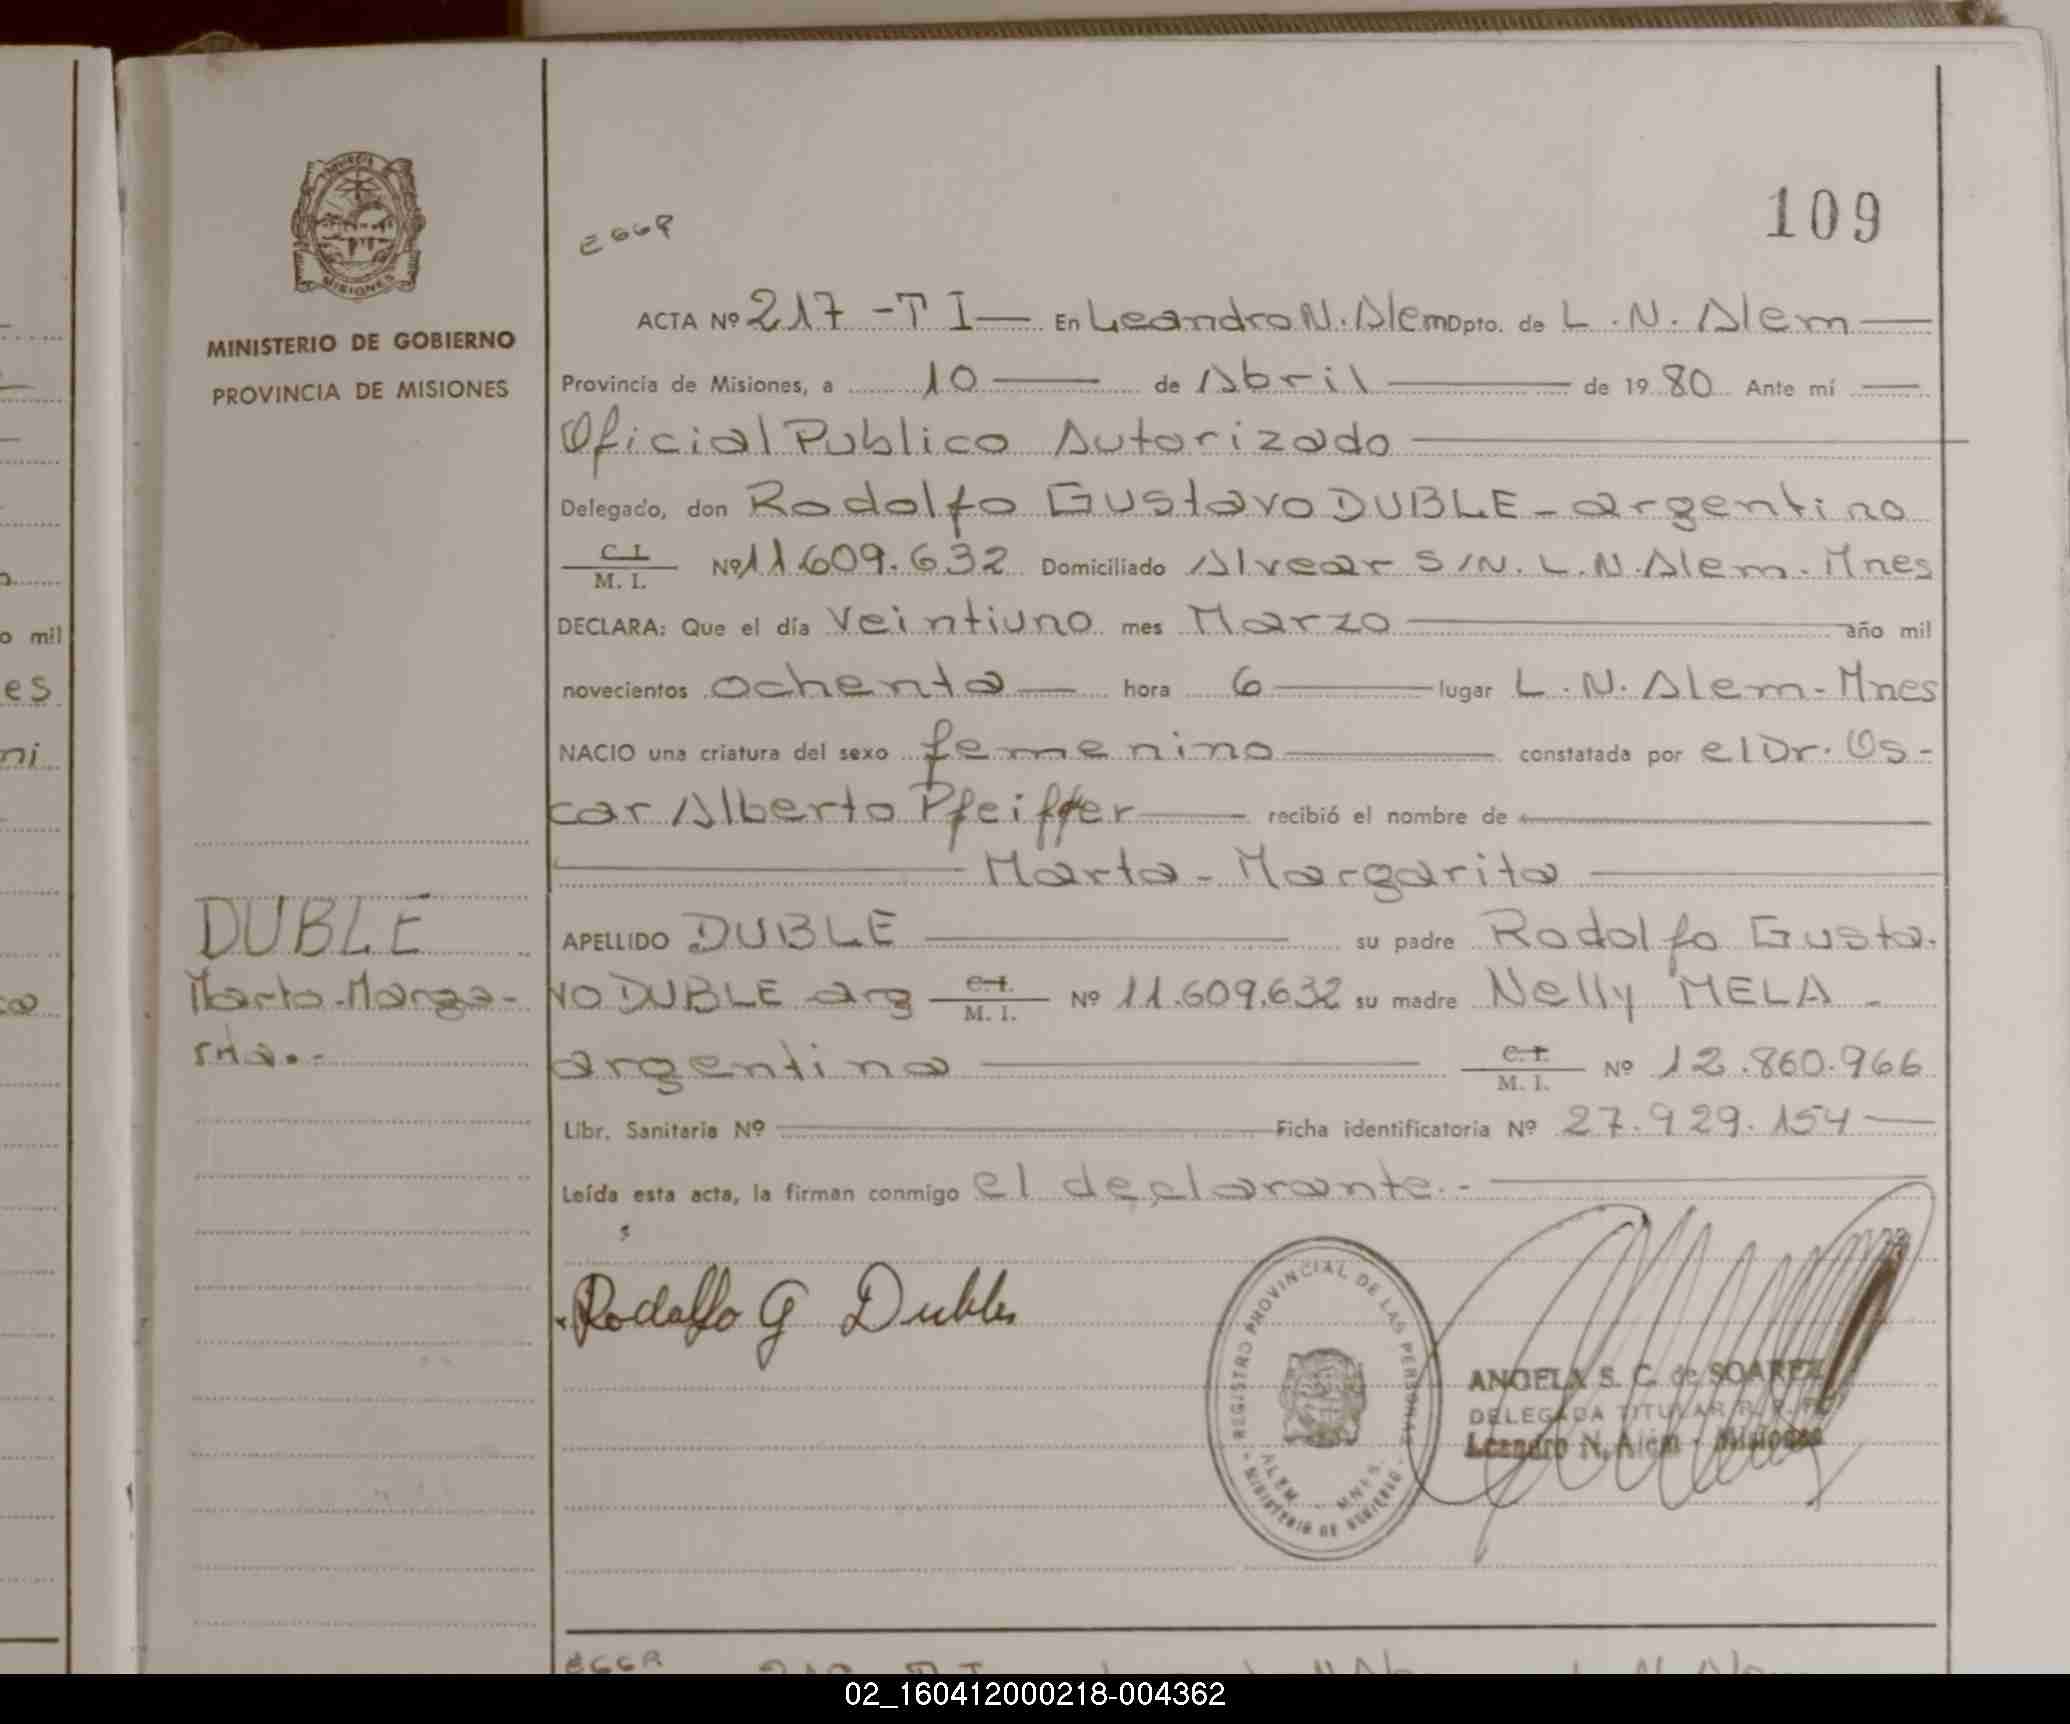 109
PROVINCIA
MISIONES
MINISTERIO DE GOBIERNO
PROVINCIA DE MISIONES
ACTA Nº 217 - T I — En Leandro N. Alem Dpto. de L. N. Alem —
Provincia de Misiones, a 10 — de Abril — de 19 80 Ante mí —
Oficial Publico Autorizado —
Delegado, don Rodolfo Gustavo DUBLE - argentino
C. I. / M. I. Nº 11.609.632 Domiciliado Alvear S/N. L.N. Alem. Mnes
DECLARA: Que el día Veintiuno mes Marzo — año mil
novecientos ochenta — hora 6 — lugar L. N. Alem - Mnes
NACIO una criatura del sexo femenino — constatada por el Dr. Os-
car Alberto Pfeiffer — recibió el nombre de —
— Marta - Margarita —
APELLIDO DUBLE — su padre Rodolfo Gusta-
vo DUBLE arg C. I. / M. I. Nº 11.609.632 su madre Nelly MELA -
argentina — C. I. / M. I. Nº 12.860.966
Libr. Sanitaria Nº — Ficha identificatoria Nº 27.929.154 —
Leída esta acta, la firman conmigo el declarante.- —
DUBLE
Marta-Marga-
rita.-
Rodolfo G Duble
REGISTRO PROVINCIAL DE LAS PERSONAS
ALEM - MNES.
MINISTERIO DE GOBIERNO
ANGELA S. C. de SOAREZ
DELEGADA TITULAR R. P. P.
Leandro N. Alem - Misiones
o mil
es
ni
02_160412000218-004362